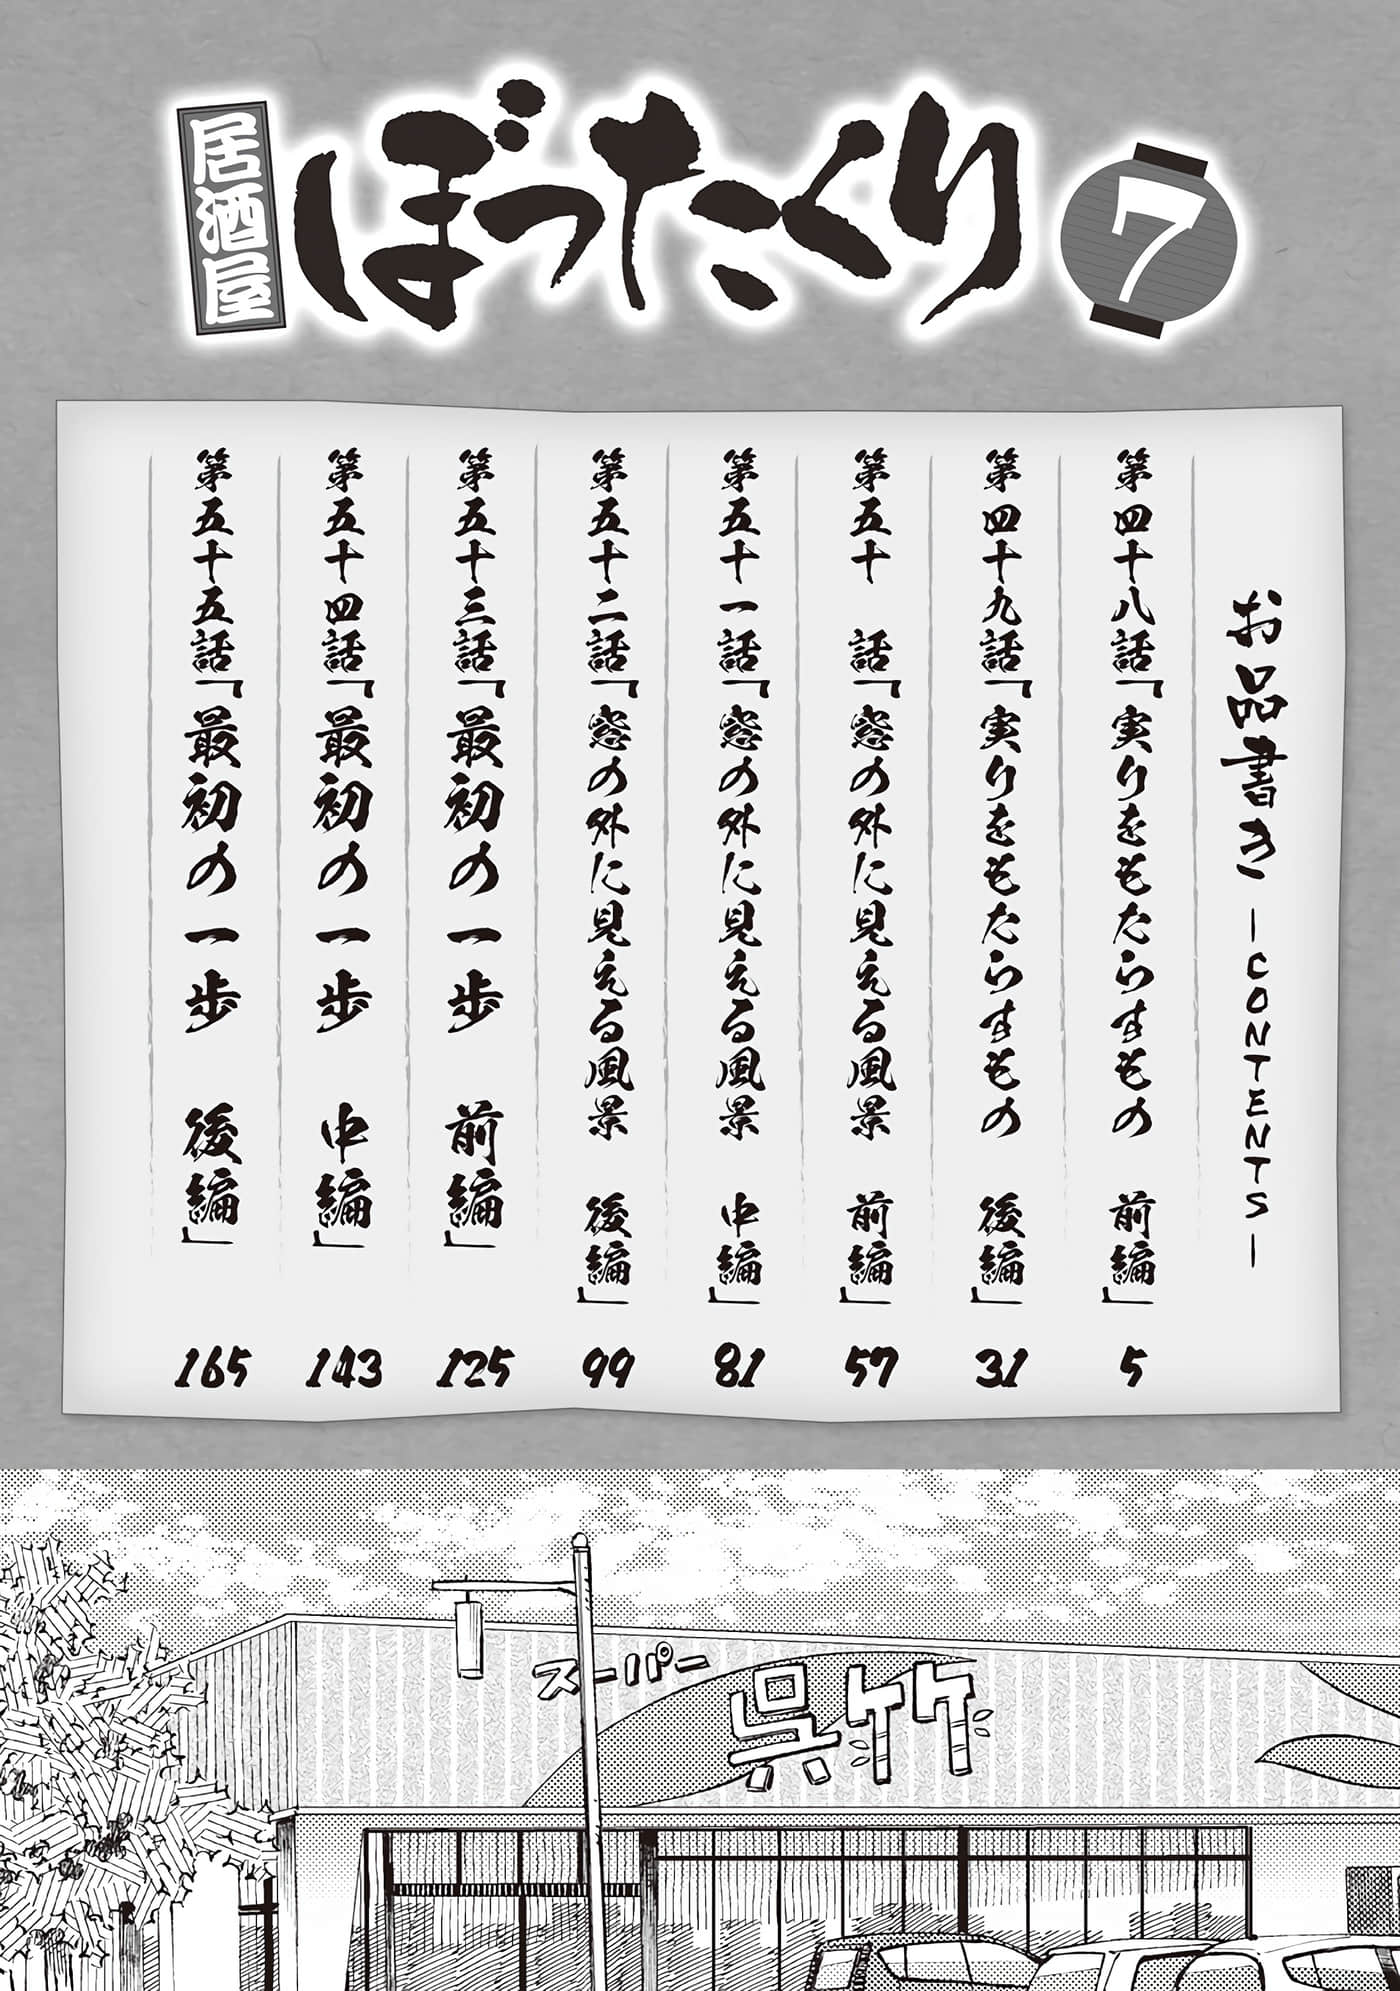 居酒屋
ぼったくり
7
お品書き －CONTENTS－
第四十八話「実りをもたらすもの　前編」 5
第四十九話「実りをもたらすもの　後編」 31
第五十　話「窓の外に見える風景　前編」 57
第五十一話「窓の外に見える風景　中編」 81
第五十二話「窓の外に見える風景　後編」 99
第五十三話「最初の一歩　前編」 125
第五十四話「最初の一歩　中編」 143
第五十五話「最初の一歩　後編」 165
スーパー
呉竹